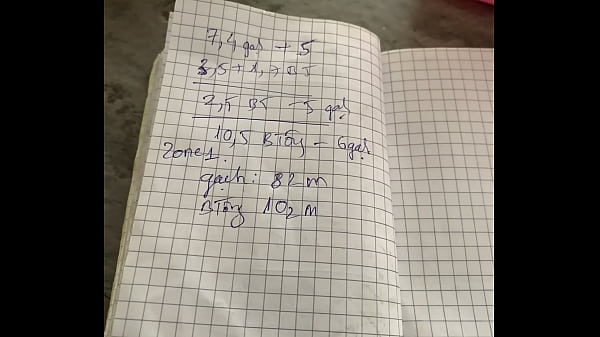 7,4 gạ + 5
3,5 + 1,7 BT
2,5 BT - 3 gạ
10,5 BTÔng - 6 gạ
Zone 1.
gạch: 82 m
BTÔng 102 m